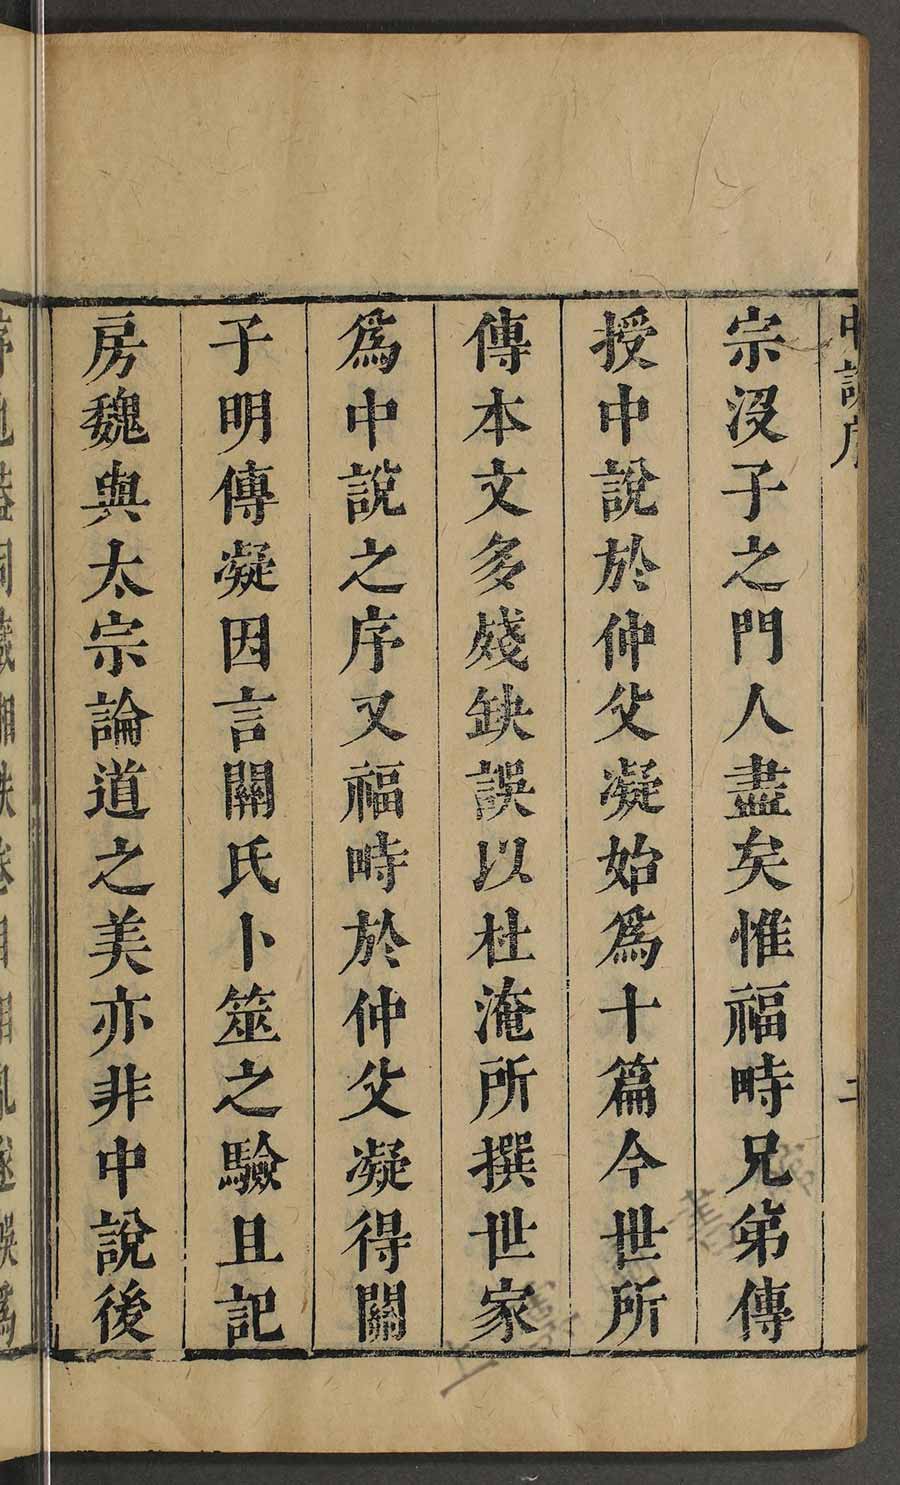 中說序
二
宗沒子之門人盡矣惟福畤兄弟傳
授中說於仲父凝始爲十篇今世所
傳本文多殘缺誤以杜淹所撰世家
爲中說之序又福畤於仲父凝得關
子明傳凝因言關氏卜筮之驗且記
房魏與太宗論道之美亦非中說後